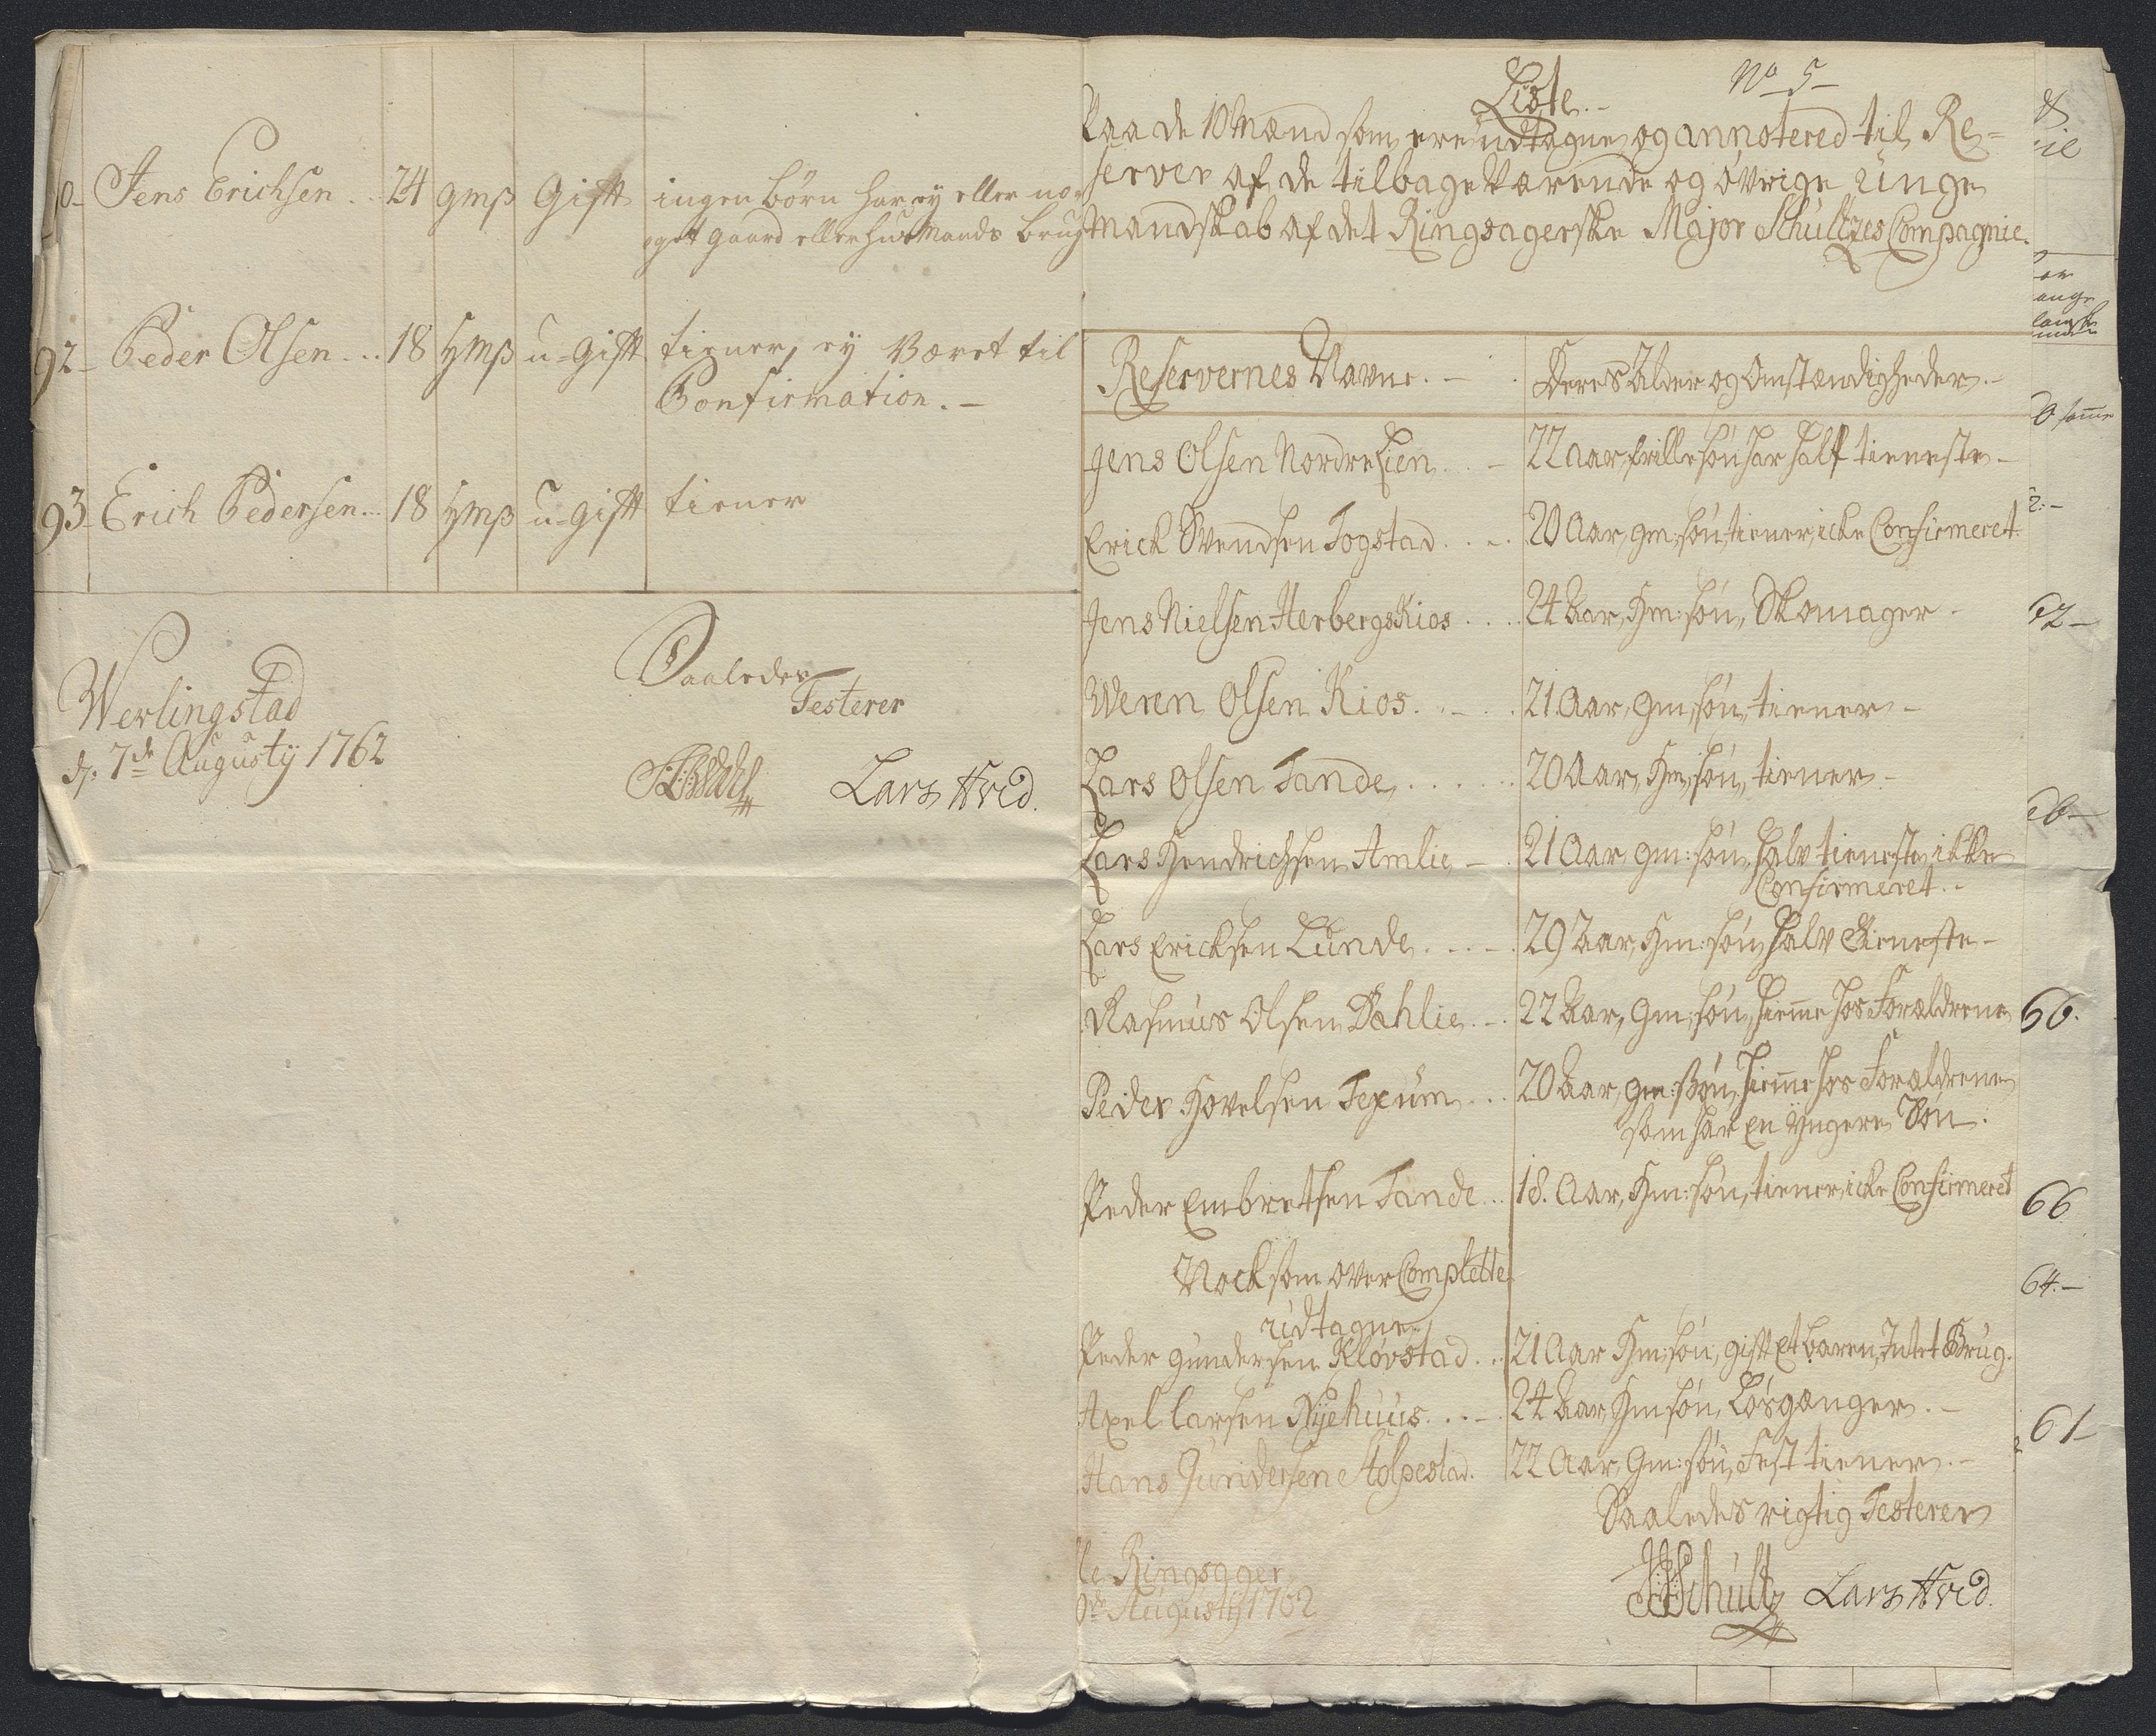 Jens Erichsen .. 24 gmß Gift ingen børn har ey eller no
eget gaard eller huusmands brug
92- Peder Olsen ... 18 hmß u-gift tiener, ey Været til
Confirmation. -
93- Erich Pedersen... 18 hmß u-gift tiener
Saaledes
Testerer
Werlingstad
d. 7de Augusty 1762
Lars Hvid.
No 5-
Liste.-
Paa de 10 Mænd som ere udtagne og annotered til Re=
server af de tilbageværende og øvrige unge
Mandskab af det Ringsagerske Major Schultzes Compagnie.
Reservernes Navne. - Deres Alder og Omstændigheder.-
Jens Olsen Nordre Lien .. - 22 Aar, frillesøn har half tieneste -
Erick Svendsen Togstad . . - . 20 Aar, gm: søn, tiener, icke Confirmeret.
Jens Nielsen Herbergs Kios . . . . 24 Aar, Hm: søn, Skomager -
Weren Olsen Kios. . - . . 21 Aar, gm, søn, tiener -
Lars Olsen Tande . . . . . . 20 Aar, Hm, søn, tiener -
Lars Hendrichsen Amlie - . 21 Aar, gm: søn, halv tieneste, ikke
Confirmeret. -
Lars Ericksen Lunde . . . - . 29 Aar, Hm: søn, halv tieneste -
Rasmus Olsen Dahlie . . - . 22 Aar, Gm, søn, hieme hos Forældrene
Peder Hovelsen Texum . . . 20 Aar, gm: Søn, hieme hos Forældrene
som har en yngere Søn.
Peder Embretsen Tande . . 18. Aar, Hm: søn, tiener, icke Confirmeret
Nock som over Complette
udtagne.
Peder Gundersen Kløvstad . . . 21 Aar Hm: søn, gift et baren, Intet Brug.
Axel Larsen Nyehuus. . . - . 24 Aar, Hm søn, Løsgænger. -
Hans Gundersen Stolpestad. 22 Aar, Gm: søn, Fest tiener. -
Saaledes rigtig Testerer
Ringsager
Augusty 1762
Schultz Lars Hvid.
66
64.-
61-